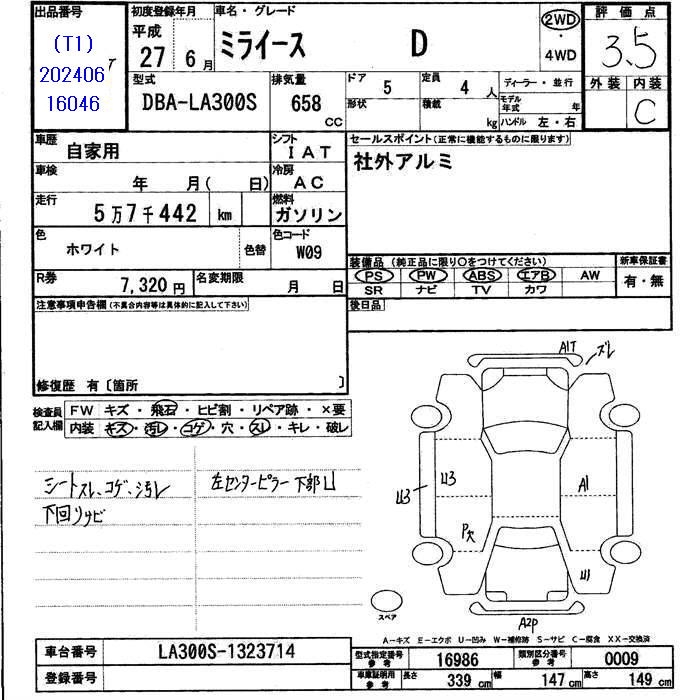 出品番号
(T1)
202406
16046
初度登録年月
平成
27 6月
車名・グレード
ミライース D
2WD
・
4WD
評価点
3.5
外装 内装
C
型式
DBA-LA300S
排気量
658
CC
ドア
5
定員
4人
形状
積載
kg
ディーラー・並行
モデル年式 年
ハンドル 左・右
車歴
自家用
シフト
IAT
車検
年 月( 日)
冷房
AC
走行
5万7千442 km
燃料
ガソリン
色
ホワイト
色替
色コード
W09
R券
7,320円
名変期限
月 日
セールスポイント(正常に機能するものに限ります)
社外アルミ
装備品(純正品に限り○をつけてください)
新車保証書
PS PW ABS エアB AW
有・無
SR ナビ TV カワ
後日品
注意事項申告欄(不具合内容等は具体的に記入して下さい)
修復歴 有〔箇所 〕
検査員
記入欄
FW キズ・飛石・ヒビ割・リペア跡・×要
内装 キズ・汚レ・コゲ・穴・スレ・キレ・破レ
シートスレ、コゲ、汚レ
下回りサビ
左センターピラー下部U
A1T ズレ
U3
U3
A1
P欠
U1
スペア
A2P
A-キズ E-エクボ U-凹み W-補修跡 S-サビ C-腐食 XX-交換済
車台番号
LA300S-1323714
登録番号
型式指定番号
参考
16986
類別区分番号
参考
0009
車庫証明用
参考
長さ 339 cm
幅 147 cm
高さ 149 cm